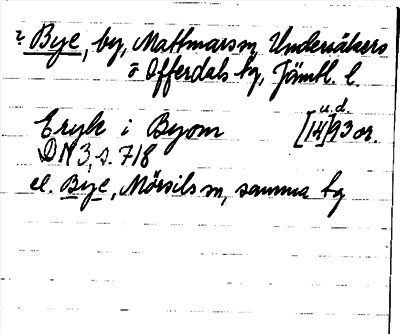 ? Bye, by, Mattmars sn, Undersåkers
o Offerdals tg, Jämtl. l.
u.d.
Eryk i Byom [14]93 or.
DN 3, s. 718
el. Bye, Mörsils sn, samma tg